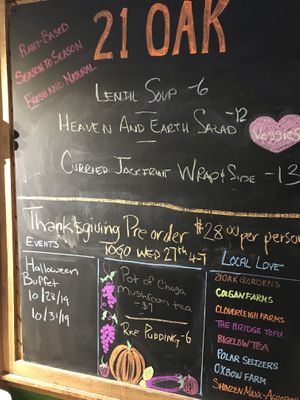 21 OAK
PLANT-BASED
SEASON TO SEASON
FRESH AND NATURAL
LENTIL SOUP -6
HEAVEN AND EARTH SALAD -12
Veggies
CURRIED JACKFRUIT WRAP & SIDE -13
Thanksgiving Pre order $28.00 per person
TOGO WED 27TH 4-7
EVENTS
Halloween
Buffet
10/23/19
10/31/19
Pot of Chaga
mushroom tea
-$9
RICE PUDDING-6
LOCAL LOVE
21 OAK GARDENS
COLGAN FARMS
CLOVERLEIGH FARMS
THE BRIDGE TOFU
BIGELOW TEA
POLAR SELTZERS
OXBOW FARM